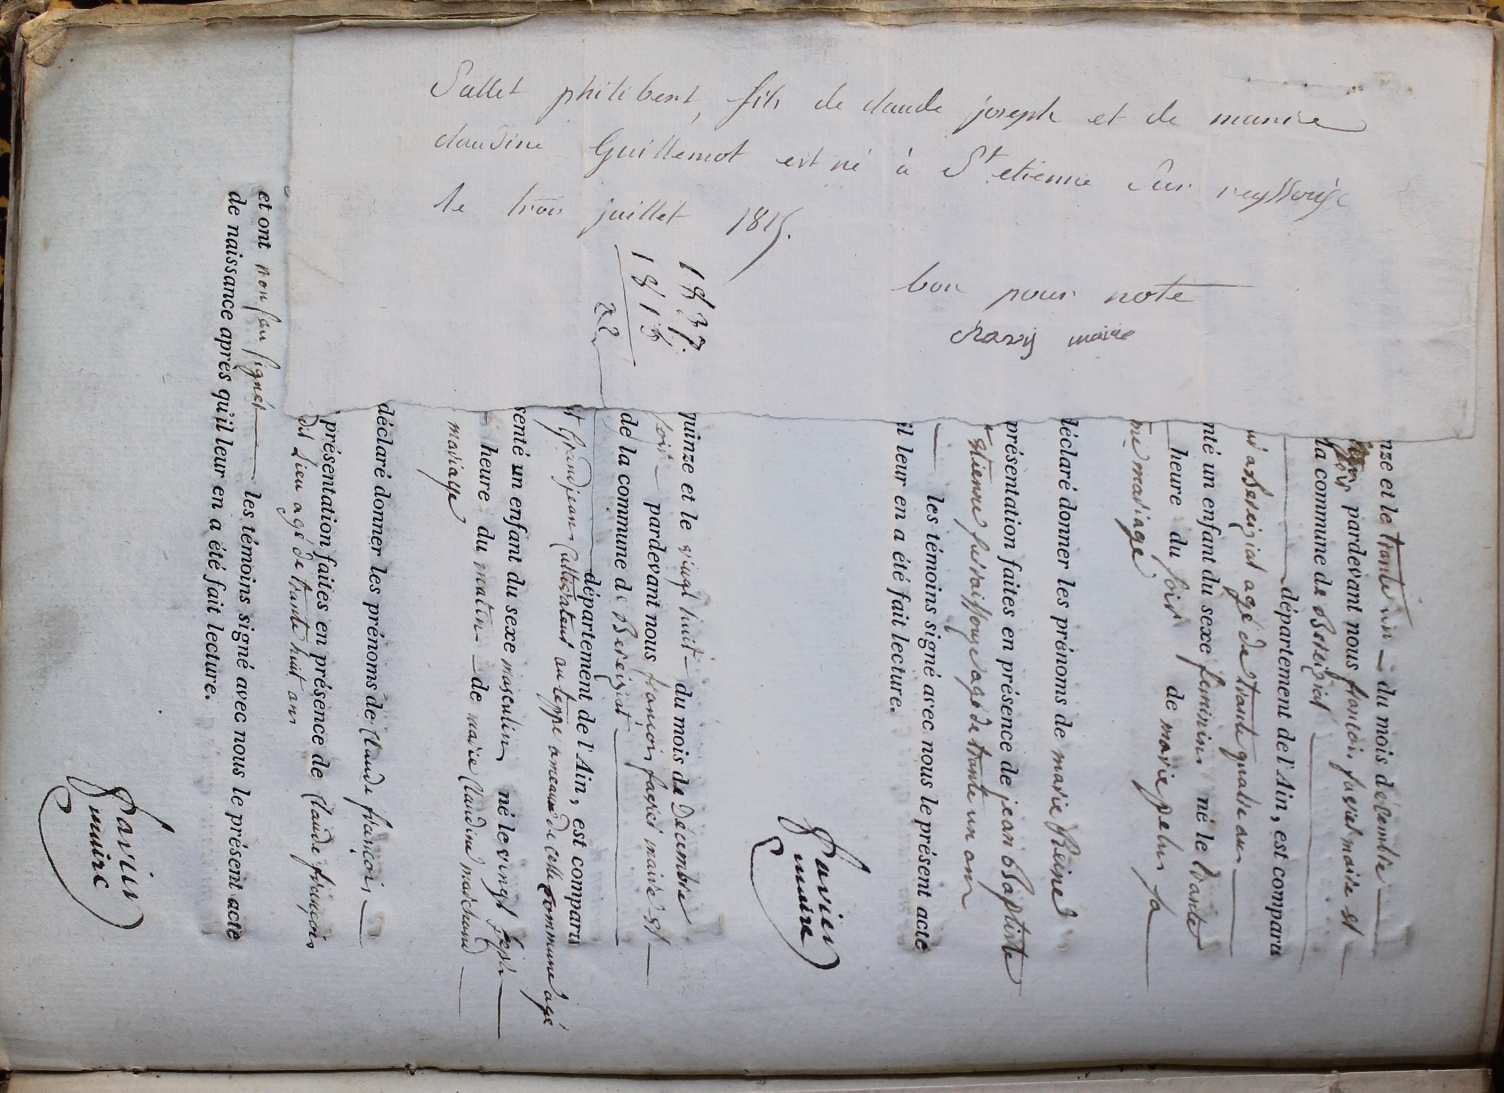 Sallet philibert, fils de claude joseph et de marie
claudine Guillemot est né à St etienne sur reyssouze
le trois juillet 1815.
bon pour note
maire
1837.
1815
22
nze et le trente un du mois décembre
pardevant nous françois maire et
la commune de Bereiziat
département de l'Ain, est comparu
agé de trente quatre ans
nté un enfant du sexe feminin né le trente
heure du soir de marie sa
me mariage
déclaré donner les prénoms de marie Reine
présentation faites en présence de jean Baptiste
etienne sur raissouze agé de trente un ans
les témoins signé avec nous le présent acte
il leur en a été fait lecture.
maire
quinze et le vingt huit du mois de Décembre
soir pardevant nous françois maire et
de la commune de Bereiziat
département de l'Ain, est comparu
t Grandjean Cultivateur au ameau de cette commune agé
senté un enfant du sexe masculin né le vingt sept
heure du matin de marie Claudine marchand
mariage
déclaré donner les prénoms de Claude françois
présentation faites en présence de Claude françois
dit Lieu agé de trente huit ans
et ont non su signer les témoins signé avec nous le présent acte
de naissance après qu'il leur en a été fait lecture.
maire